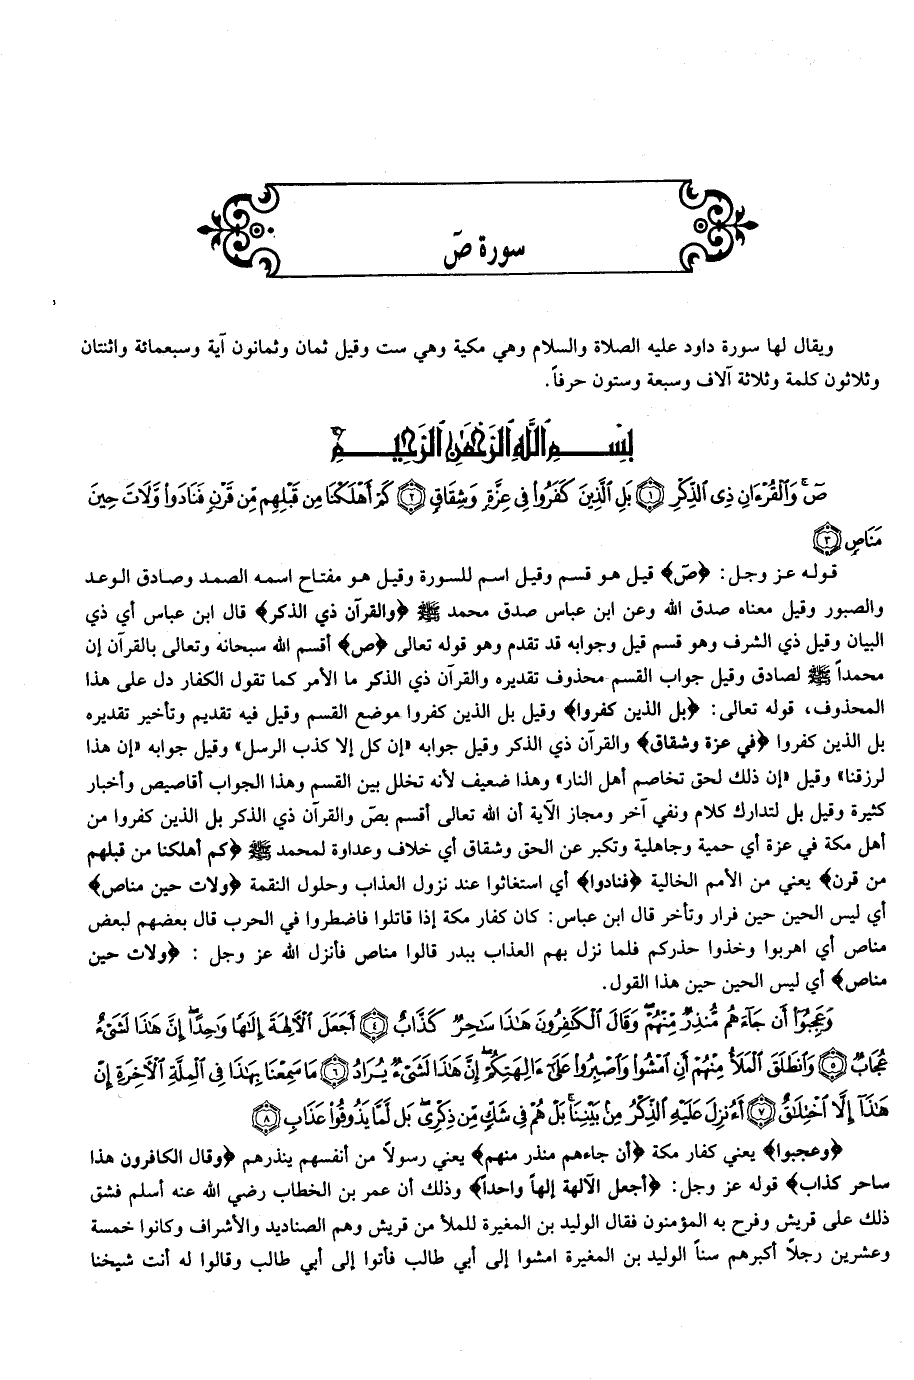 سورة صۤ
ويقال لها سورة داود عليه الصلاة والسلام وهي مكية وهي ست وقيل ثمان وثمانون آية وسبعمائة واثنتان
وثلاثون كلمة وثلاثة آلاف وسبعة وستون حرفاً.
بِسْمِ اللَّهِ الرَّحْمَٰنِ الرَّحِيمِ
صٓ ۚ وَالْقُرْءَانِ ذِى الذِّكْرِ ﴿١﴾ بَلِ الَّذِينَ كَفَرُوا فِى عِزَّةٍ وَشِقَاقٍ ﴿٢﴾ كَمْ أَهْلَكْنَا مِن قَبْلِهِم مِّن قَرْنٍ فَنَادَوا وَّلَاتَ حِينَ
مَنَاصٍ ﴿٣﴾
قوله عز وجل: ﴿صۤ﴾ قيل هو قسم وقيل اسم للسورة وقيل هو مفتاح اسمه الصمد وصادق الوعد
والصبور وقيل معناه صدق الله وعن ابن عباس صدق محمد ﷺ ﴿والقرآن ذي الذكر﴾ قال ابن عباس أي ذي
البيان وقيل ذي الشرف وهو قسم قيل وجوابه قد تقدم وهو قوله تعالى ﴿ص﴾ أقسم الله سبحانه وتعالى بالقرآن إن
محمداً ﷺ لصادق وقيل جواب القسم محذوف تقديره والقرآن ذي الذكر ما الأمر كما تقول الكفار دل على هذا
المحذوف، قوله تعالى: ﴿بل الذين كفروا﴾ وقيل بل الذين كفروا موضع القسم وقيل فيه تقديم وتأخير تقديره
بل الذين كفروا ﴿في عزة وشقاق﴾ والقرآن ذي الذكر وقيل جوابه «إن كل إلا كذب الرسل» وقيل جوابه «إن هذا
لرزقنا» وقيل «إن ذلك لحق تخاصم أهل النار» وهذا ضعيف لأنه تخلل بين القسم وهذا الجواب أقاصيص وأخبار
كثيرة وقيل بل لتدارك كلام ونفي آخر ومجاز الآية أن الله تعالى أقسم بصۤ والقرآن ذي الذكر بل الذين كفروا من
أهل مكة في عزة أي حمية وجاهلية وتكبر عن الحق وشقاق أي خلاف وعداوة لمحمد ﷺ ﴿كم أهلكنا من قبلهم
من قرن﴾ يعني من الأمم الخالية ﴿فنادوا﴾ أي استغاثوا عند نزول العذاب وحلول النقمة ﴿ولات حين مناص﴾
أي ليس الحين حين فرار وتأخر قال ابن عباس: كان كفار مكة إذا قاتلوا فاضطروا في الحرب قال بعضهم لبعض
مناص أي اهربوا وخذوا حذركم فلما نزل بهم العذاب ببدر قالوا مناص فأنزل الله عز وجل : ﴿ولات حين
مناص﴾ أي ليس الحين حين هذا القول.
وَعَجِبُوٓا أَن جَآءَهُم مُّنذِرٌ مِّنْهُمْ ۖ وَقَالَ الْكَٰفِرُونَ هَٰذَا سَٰحِرٌ كَذَّابٌ ﴿٤﴾ أَجَعَلَ الْءَالِهَةَ إِلَٰهًا وَٰحِدًا ۖ إِنَّ هَٰذَا لَشَىْءٌ
عُجَابٌ ﴿٥﴾ وَانطَلَقَ الْمَلَأُ مِنْهُمْ أَنِ امْشُوا وَاصْبِرُوا عَلَىٰٓ ءَالِهَتِكُمْ ۖ إِنَّ هَٰذَا لَشَىْءٌ يُرَادُ ﴿٦﴾ مَا سَمِعْنَا بِهَٰذَا فِى الْمِلَّةِ الْءَاخِرَةِ إِنْ
هَٰذَآ إِلَّا اخْتِلَٰقٌ ﴿٧﴾ أَءُنزِلَ عَلَيْهِ الذِّكْرُ مِنۢ بَيْنِنَا ۚ بَلْ هُمْ فِى شَكٍّ مِّن ذِكْرِى ۖ بَل لَّمَّا يَذُوقُوا عَذَابِ ﴿٨﴾
﴿وعجبوا﴾ يعني كفار مكة ﴿أن جاءهم منذر منهم﴾ يعني رسولاً من أنفسهم ينذرهم ﴿وقال الكافرون هذا
ساحر كذاب﴾ قوله عز وجل: ﴿أجعل الآلهة إلهاً واحداً﴾ وذلك أن عمر بن الخطاب رضي الله عنه أسلم فشق
ذلك على قريش وفرح به المؤمنون فقال الوليد بن المغيرة للملأ من قريش وهم الصناديد والأشراف وكانوا خمسة
وعشرين رجلاً أكبرهم سناً الوليد بن المغيرة امشوا إلى أبي طالب فأتوا إلى أبي طالب وقالوا له أنت شيخنا